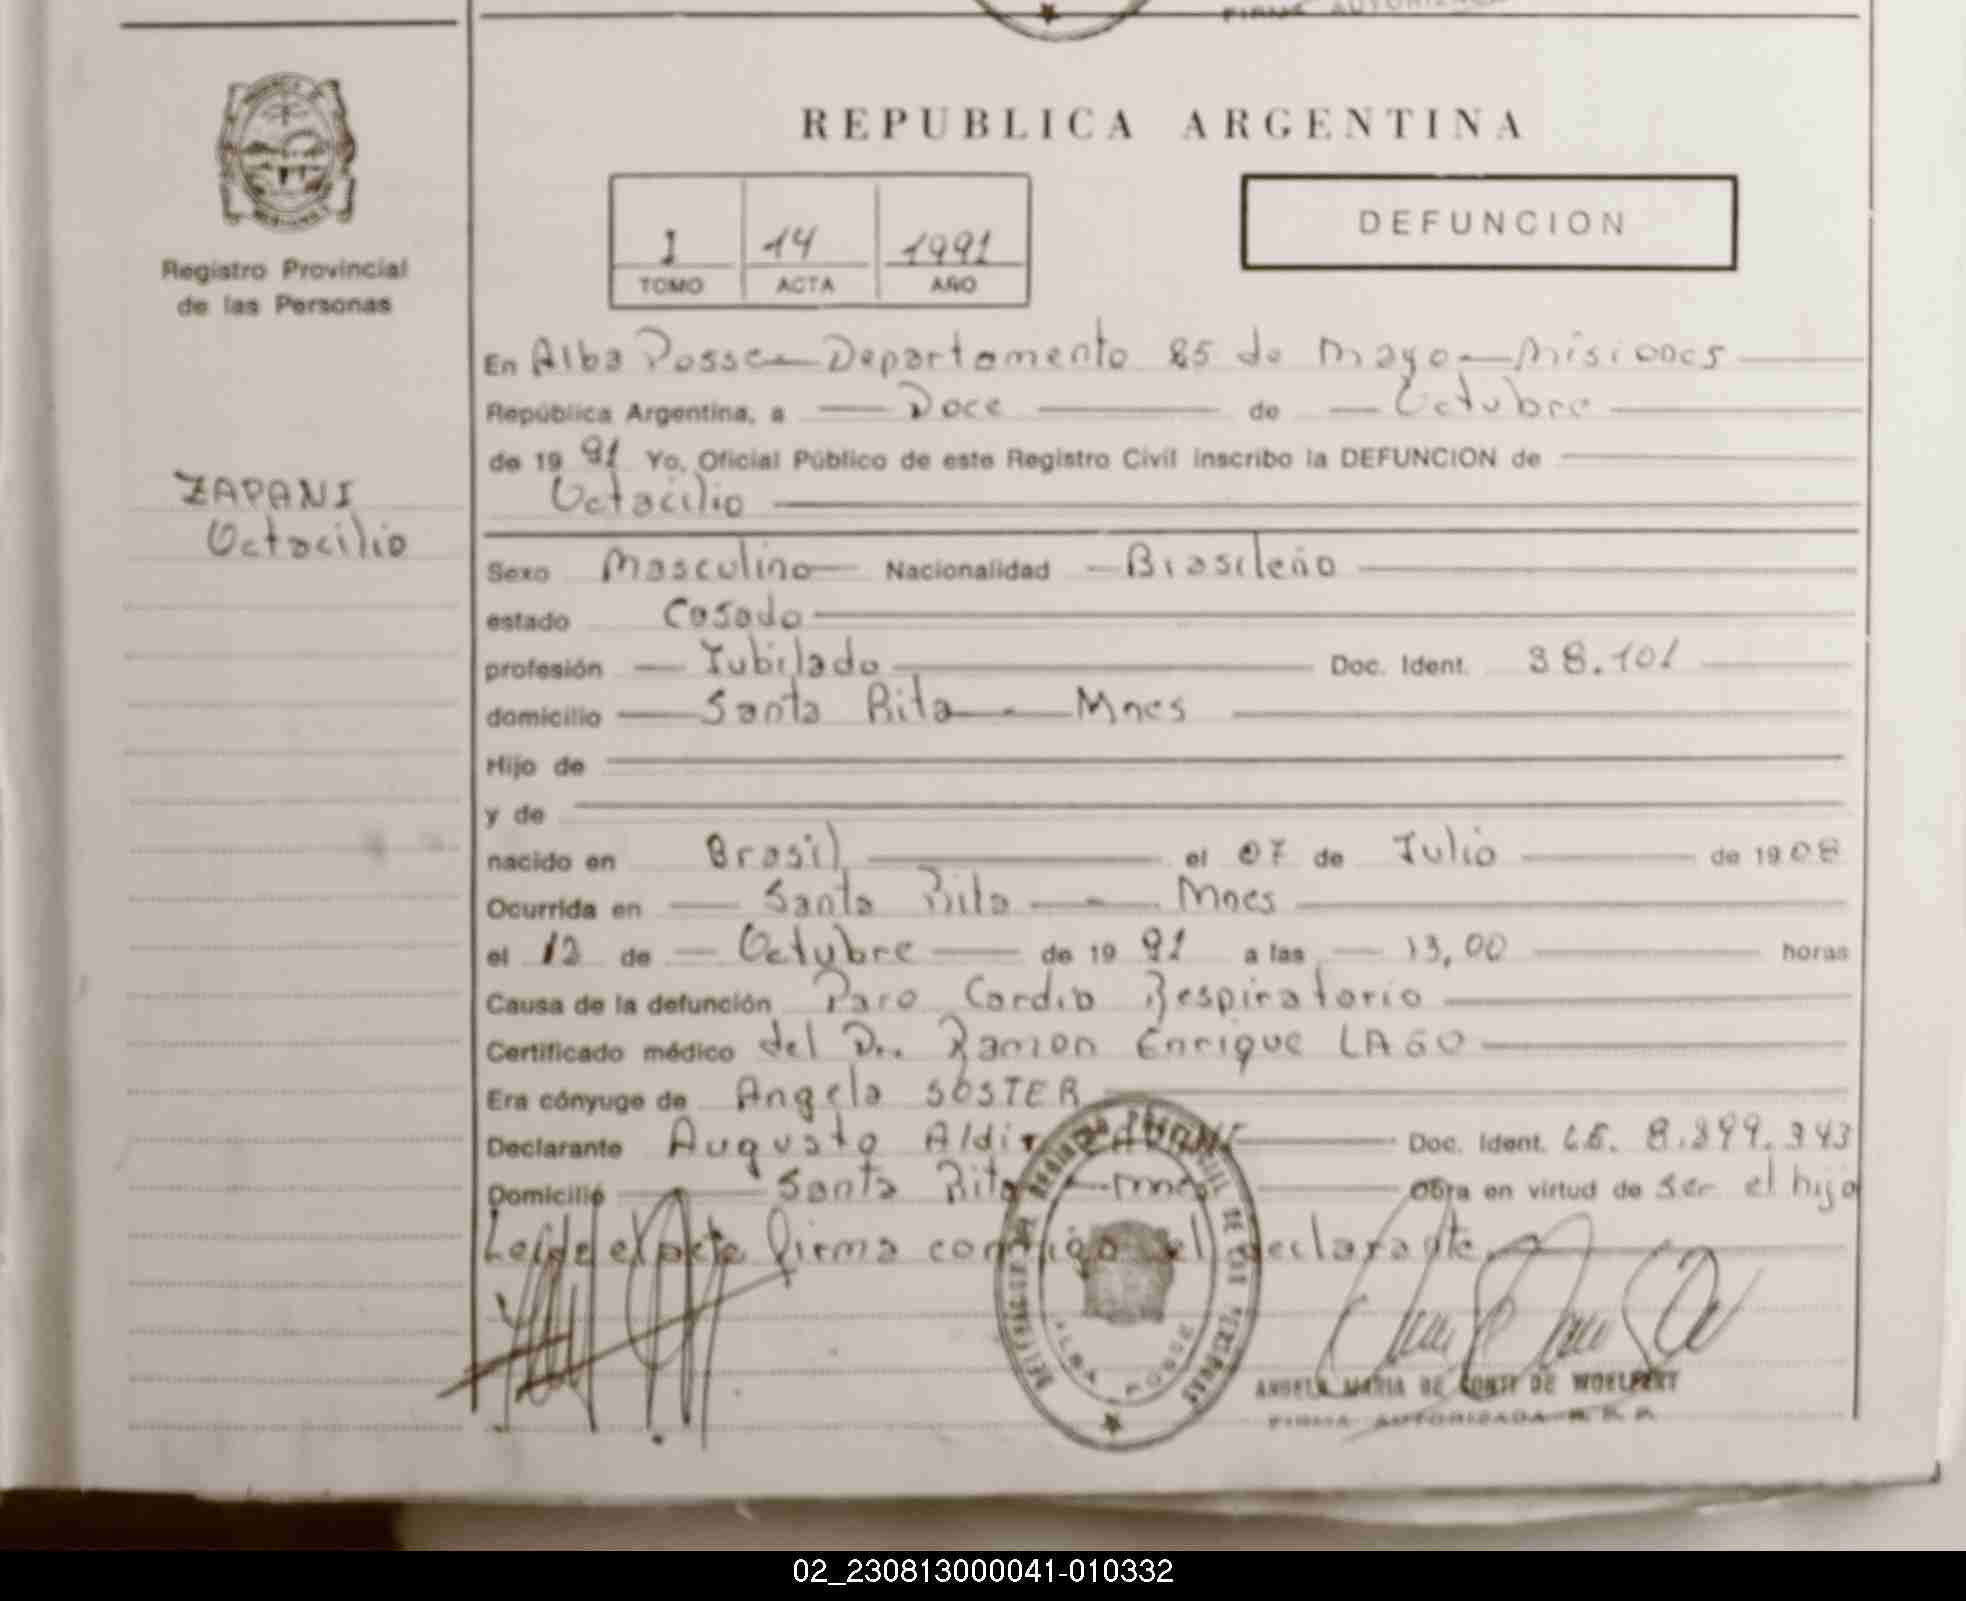 REPUBLICA ARGENTINA
Registro Provincial
de las Personas
1 14 1991
TOMO ACTA AÑO
DEFUNCION
ZAPANI
Octacilio
En Alba Posse - Departamento 25 de Mayo - Misiones
República Argentina, a Doce de Octubre
de 19 91 Yo, Oficial Público de este Registro Civil inscribo la DEFUNCION de
Octacilio
Sexo Masculino Nacionalidad Brasileño
estado Casado
profesión Jubilado Doc. Ident. 38.101
domicilio Santa Rita - Mnes
Hijo de
y de
nacido en Brasil el 07 de Julio de 19 08
Ocurrida en Santa Rita - Mnes
el 12 de Octubre de 19 91 a las 13,00 horas
Causa de la defunción Paro Cardio Respiratorio
Certificado médico del Dr. Ramon Enrique LAGO
Era cónyuge de Angela SOSTER
Declarante Augusto Aldir Doc. Ident. 8.299.343
Domicilio Santa Rita - Mnes Obra en virtud de ser el hijo
Leida el acta firma conmigo el declarante
ALBA POSSE
ANGELA MARIA DE CONTI DE WOELFERT
FIRMA AUTORIZADA R. P. P.
02_230813000041-010332